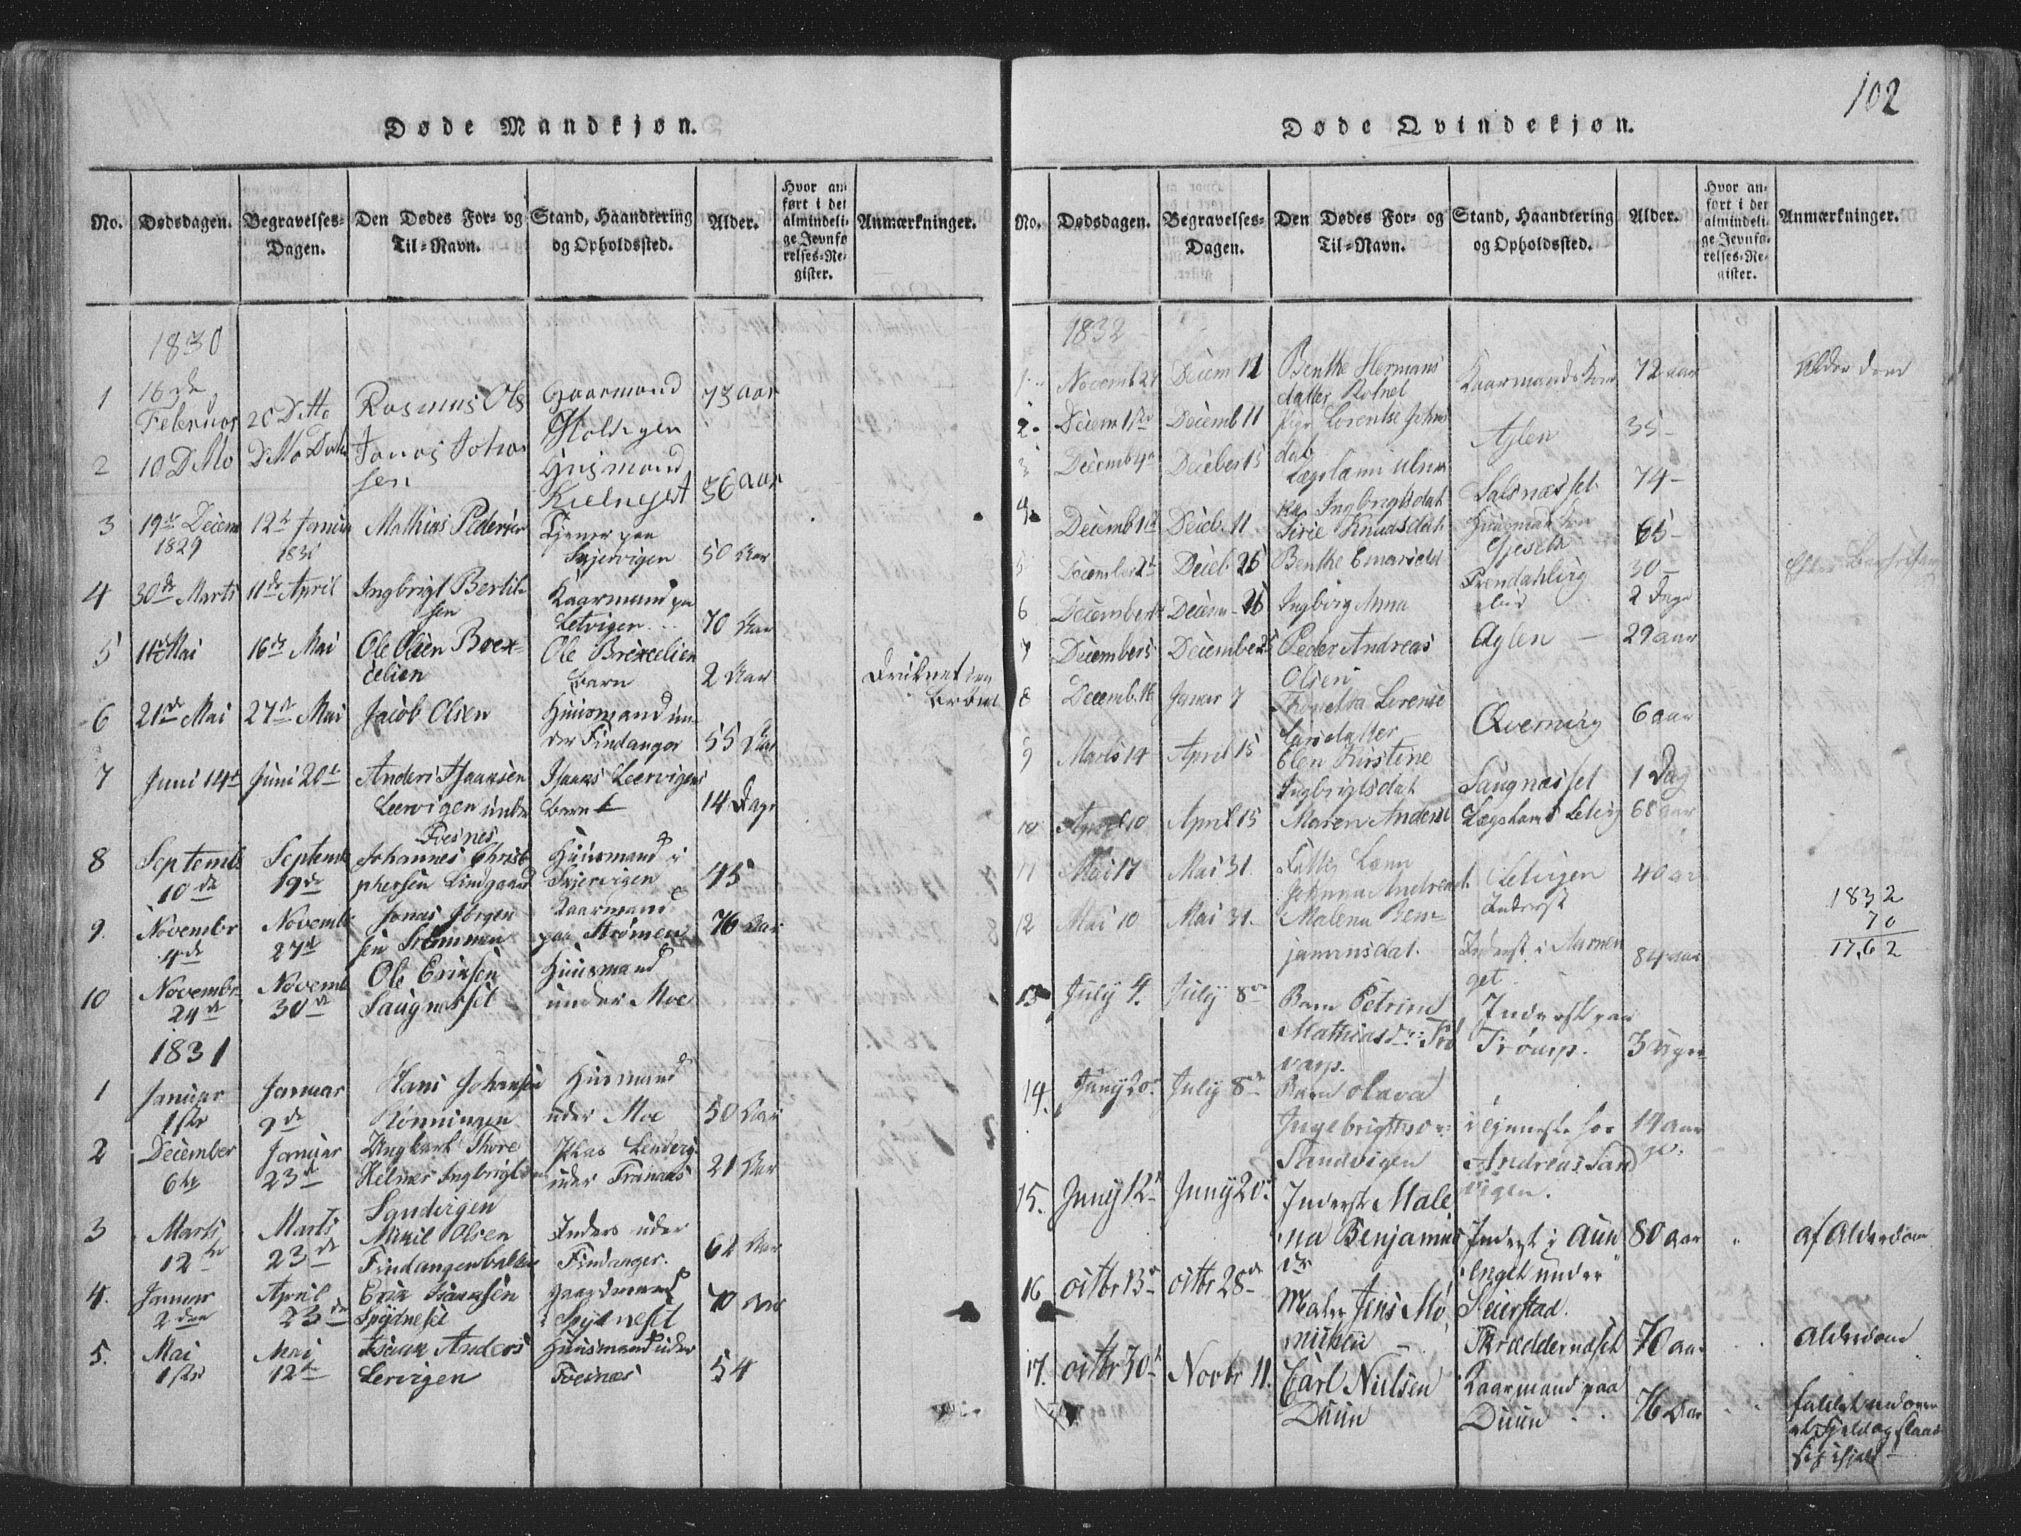 102
Døde Mandkjøn.
No. Dødsdagen. Begravelses-Dagen. Den Dødes For- og Til-Navn. Stand, Haandtering og Opholdssted. Alder. Hvor anført i det almindelige Jevnførelses-Register. Anmærkninger.
1830
1 16de Februar 20 Ditto Rasmus Ols Gaarmand 73 aar
2 10 Ditto Ditto Jonas Johansen Husmand 56 aar
3 19de Decem 1829 12te Januar Mathias Pedersen Tjener paa Skjervigen 50 Aar
4 30de Marts 11de April Ingbrigt Bertilsen Kaarmand pa Letvigen 70 Aar
5 11te Mai 16de Mai Ole Olsen Brexcelien Ole Brexcelien barn 2 Aar
6 21de Mai 27de Mai Jacob Olsen Huusmand under Findanger 55 Aar
7 Juni 14de Juni 20de Anders Isaaksen Leervigen under Foesnes Isaaks Leervigens barn 14 Dage
8 Septemb 10de Septemb 19de Johannes Christophersen Lindgaard Huusmand i Skjervigen 45
9. November 4de Novemb 27de Jonas Jørgensen Strømmen Kaarmand paa Strømen 76 Aar
10 Novembr. 24de Novemb 30de Ole Eriksen Saugnesset Huusmand under Moe
1831
1 Januar 1ste Januar 9de Hans Johansen Rønningen Husmand uder Moe 50 Aar
2 December 6te Januar 23de Helmer Ingbrigtsen Sandvigen uder Tranaas 21 Aar
3 Marts 12te Marts 23de Mikil Olsen Findangerbakken Inders uder Findanger. 62 Aar
4. Januar 2den April 23de Erik Isaaksen Spydneset Gaardmand Spydneset 70 Aar
5. Mai 1ste Mai 12te Isaak Anders Lervigen Huusmand uder Foesnæs 54
Døde Qvindekjøn.
No. Dødsdagen. Begravelses-Dagen. Den Dødes For- og Til-Navn. Stand, Haandtering og Opholdssted. Alder. Hvor anført i det almindelige Jevnførelses-Register. Anmærkninger.
1832
1 Novemb 27 Decem 11 Benthe Hermansdatter Kaarmands Kone 72 aar Alderdom
2. Decem 1ste Decemb 11 Pige Lorentse Johnsdat Aglen 35
3 Decemb 4de Deceber 15 Ingbrigtsdat Salsnæsset 74
4 Decemb 1ste Deceb. 11 Sirie Knudsdat Gjeseth 65
5 December 2de Deceb. 26 Benthe 30
6 December Decem 26 Ingborg Anna 2 Dage
7 December 5 December 25 Peder Andreas Olsen Aglen 29 aar
8 Decemb. 16 Januar 7 Lorense Larsdatter Qverneng 6 aar
9 Marts 14 April 15 Elen Kirstine Ingbrigtsdat Saugnæsset 1 Dag
10 April 10 April 15 Maren Anders Lægslam Letvig 68 aar
11 Mai 17 Mai 31. Fattig Lem Johanna Andreasd. Letvigen Inderst 40 aar
12 Mai 10 Mai 31. Malena Benjaminsdat. Inderst i Aunenget 84 aar
1832
70
1762
13 July 4. July 8de Barn Petrine Mathiasd. Inderst paa 3 Uger
14. Juny 20de July 8de Barn Olava Ingebrigts Sandvigen i tjeneste hos Andreas Sandvigen. 14 aar
15. Juny 12te Juny 20de Inderst Malena Benjamins Inderst i Aunenget under Seierstad. 80 aar af Alderdom
16 octbr 13de octbr 28de Jens Skrædderndset 70 aar Alderdom
17. octbr 30te Novbr 11. Carl Nielsen Duun Kaarmand paa Duun 76 Aar faldt